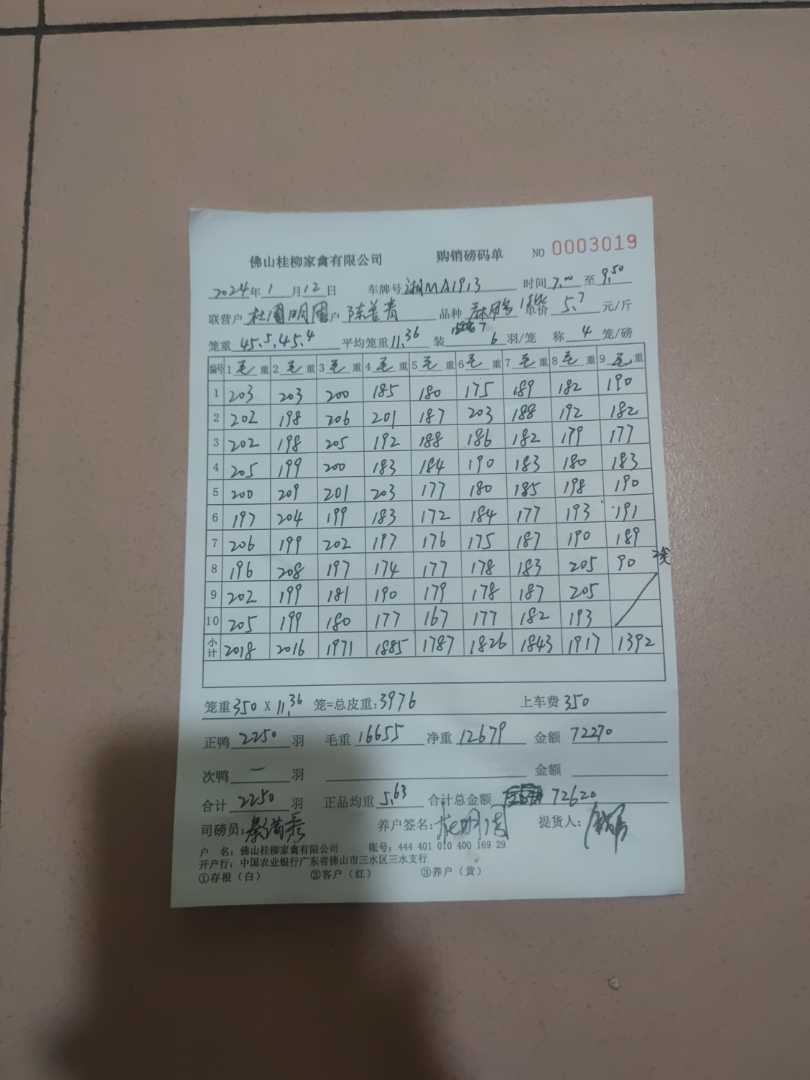 佛山桂柳家禽有限公司 购销磅码单 NO 0003019
2024年1月12日 车牌号湘MA1913 时间7.00至9.50
联营户杜国明 户陈善青 品种 单价5.7元/斤
笼重45.5.45.4 平均笼重11.36 装 6羽/笼 称4笼/磅
编号 1毛重 2毛重 3毛重 4毛重 5毛重 6毛重 7毛重 8毛重 9毛重
1 203 203 200 185 180 175 189 182 190
2 202 198 206 201 187 203 188 192 182
3 202 198 205 192 188 186 182 179 177
4 205 199 200 183 184 190 183 180 183
5 200 209 201 203 177 180 185 198 190
6 197 204 199 183 172 184 177 193 191
7 206 199 202 197 176 175 187 190 189
8 196 208 197 174 177 178 183 205 90
9 202 199 181 190 179 178 187 205
10 205 199 180 177 167 177 182 193
小计 2018 2016 1971 1885 1787 1826 1843 1917 1392
笼重350X11.36笼=总皮重:3976 上车费350
正鸭2250羽 毛重16655 净重12679 金额72270
次鸭一羽 金额
合计2250羽 正品均重5.63 合计总金额 72620
司磅员: 养户签名: 提货人:
户 名: 佛山桂柳家禽有限公司 账号: 444 401 010 400 169 29
开户行: 中国农业银行广东省佛山市三水区三水支行
①存根(白) ②客户(红) ③养户(黄)